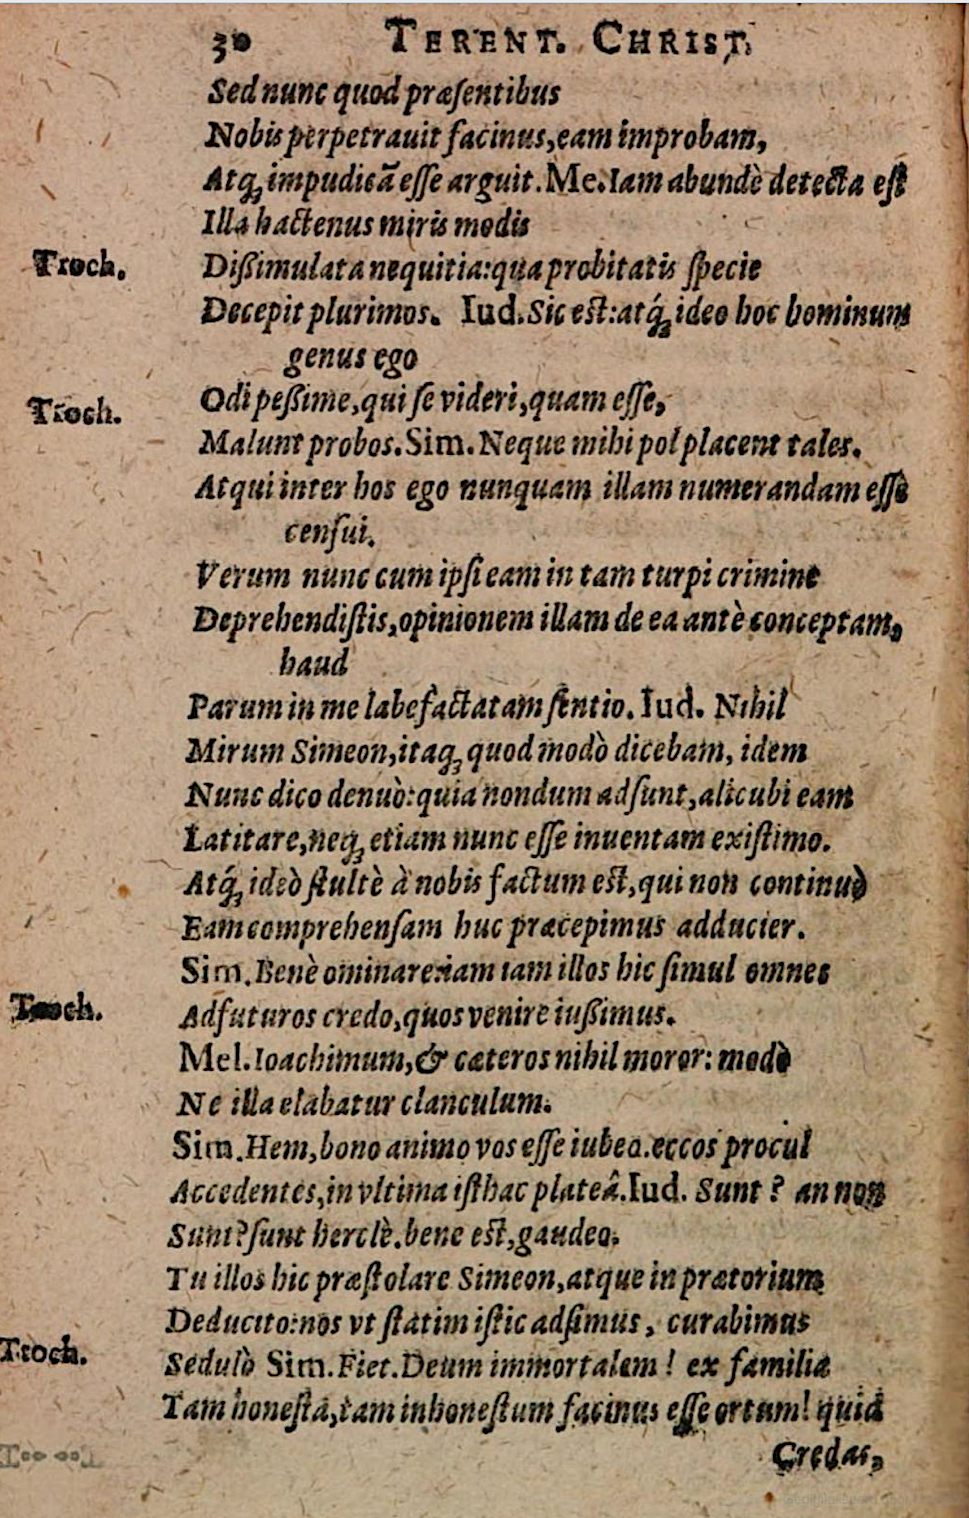 30 TERENT. CHRIST.
Sed nunc quod præſentibus
Nobis perpetrauit facinus, eam improbam,
Atq; impudicã eſſe arguit. Me. Iam abundè detecta eſt
Illa hactenus miris modis
Troch. Dißimulata nequitia: qua probitatis ſpecie
Decepit plurimos. Iud. Sic eſt: atq́; ideo hoc hominum
genus ego
Troch. Odi peßime, qui ſe videri, quam eſſe,
Malunt probos. Sim. Neque mihi pol placent tales.
Atqui inter hos ego nunquam illam numerandam eſſe
cenſui.
Verum nunc cum ipſi eam in tam turpi crimine
Deprehendiſtis, opinionem illam de ea antè conceptam,
haud
Parum in me labefactatam ſentio. Iud. Nihil
Mirum Simeon, itaq; quod modò dicebam, idem
Nunc dico denuò: quia nondum adſunt, alicubi eam
Latitare, neq; etiam nunc eſſe inuentam exiſtimo.
Atq́; ideò ſtultè à nobis factum eſt, qui non continuò
Eam comprehenſam huc præcepimus adducier.
Sim. Benè ominare: iam iam illos hic ſimul omnes
Troch. Adfuturos credo, quos venire iußimus.
Mel. Ioachimum, & cæteros nihil moror: modò
Ne illa elabatur clanculum.
Sim. Hem, bono animo vos eſſe iubeo. eccos procul
Accedentes, in vltima iſthac plateâ. Iud. Sunt? an non
Sunt? ſunt herclè. bene eſt, gaudeo.
Tu illos hic præſtolare Simeon, atque in prætorium
Deducito: nos vt ſtatim iſtic adſimus, curabimus
Troch. Sedulò Sim. Fiet. Deum immortalem! ex familia
Tam honeſtâ, tam inhoneſtum facinus eſſe ortum! quid
Credas,